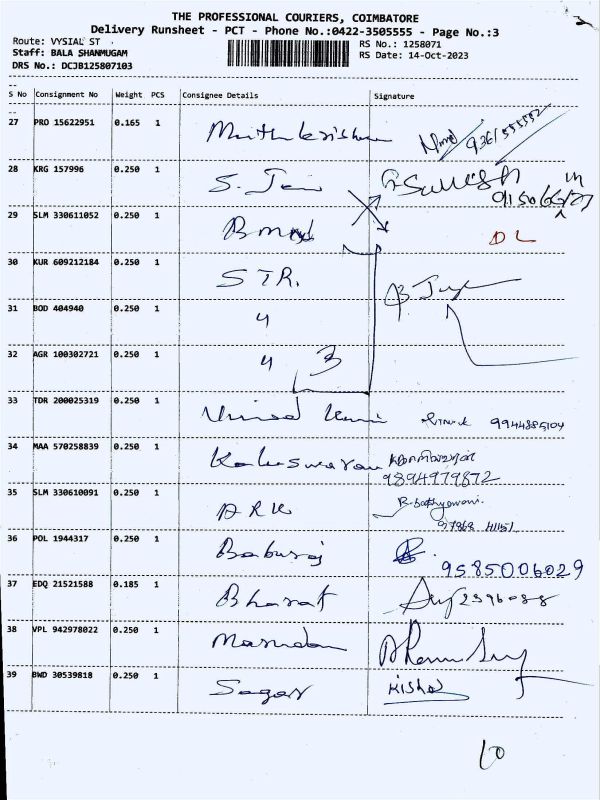 THE PROFESSIONAL COURIERS, COIMBATORE
Delivery Runsheet - PCT - Phone No.:0422-3505555 - Page No.:3
Route: VYSIAL ST
RS No.: 1258071
Staff: BALA SHANMUGAM
RS Date: 14-Oct-2023
DRS No.: DCJB125807103
S No Consignment No Weight PCS Consignee Details Signature
27 PRO 15622951 0.165 1 Muthukrishna
28 KRG 157996 0.250 1 S. Jain Suresh
29 SLM 330611052 0.250 1 DL
30 KUR 609212184 0.250 1 STR.
31 BOD 404940 0.250 1 4
32 AGR 100302721 0.250 1 4 3
33 TDR 200025319 0.250 1 9944885104
34 MAA 570258839 0.250 1 Kaleswaran
9894979872
35 SLM 330610091 0.250 1 ARK
36 POL 1944317 0.250 1 Baburaj 9585006029
37 EDQ 21521588 0.185 1 Bharat
38 VPL 942978022 0.250 1
39 BWD 30539818 0.250 1 Sagar Kishor
10